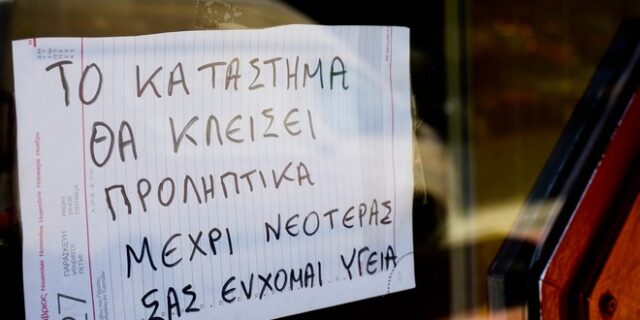 ΤΟ ΚΑΤΑΣΤΗΜΑ
ΘΑ ΚΛΕΙΣΕΙ
ΠΡΟΛΗΠΤΙΚΑ
ΜΕΧΡΙ ΝΕΟΤΕΡΑΣ
ΣΑΣ ΕΥΧΟΜΑΙ ΥΓΕΙΑ
ΠΑΡΑΣΚΕΥΗ
VENDREDI
27